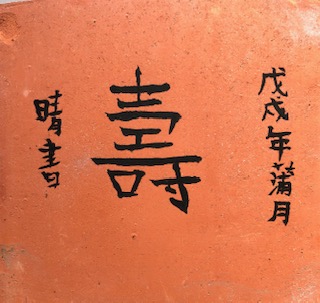 戊戌年蒲月
壽
晴書